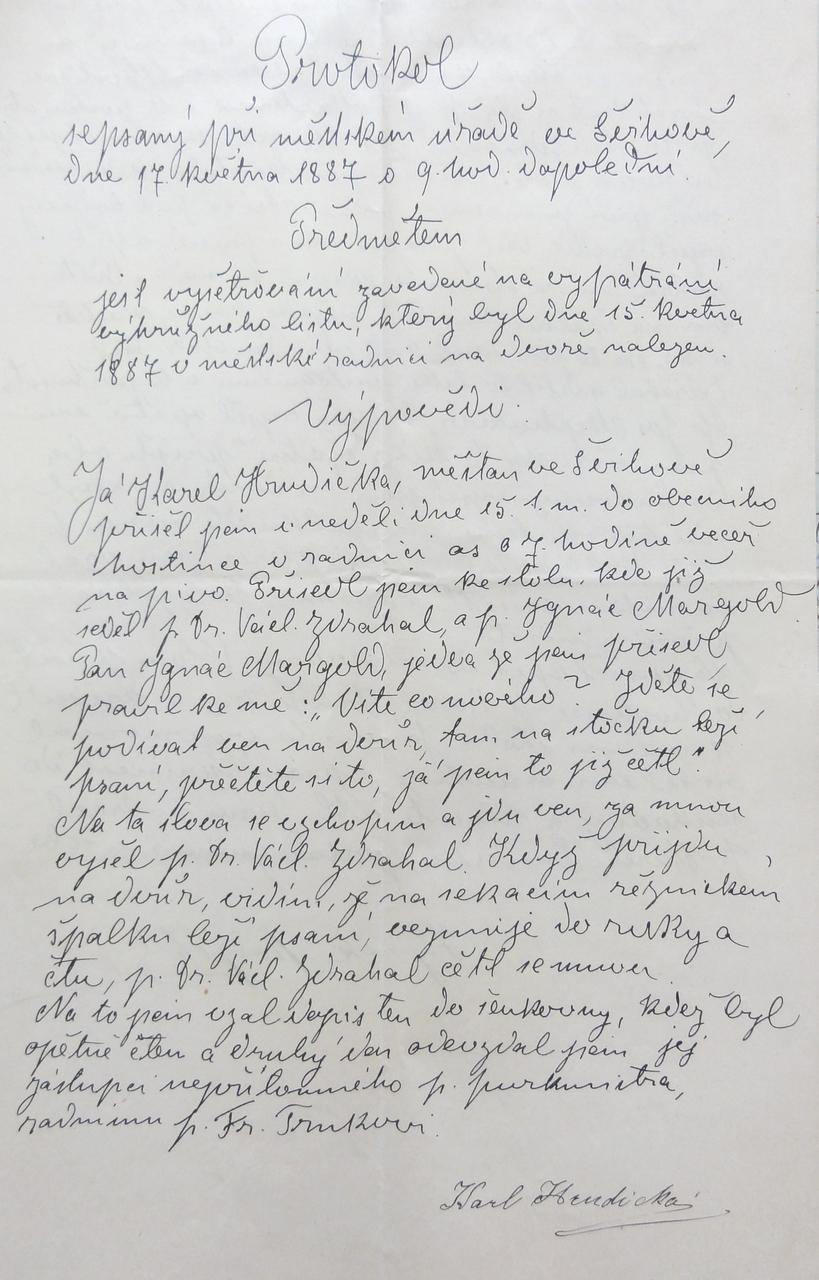 Protokol
sepsaný při městském úřadě ve Švihově,
dne 17 května 1887 o 9. hod. dopolední.
Předmětem
jest vyšetřování zavedené na vypátrání
výhružného listu, který byl dne 15. května
1887 v městské radnici na dvoře nalezen.
Výpovědi:
Já Karel Hrudička, měšťan ve Švihově
přišel jsem v neděli dne 15. t. m. do obecního
hostince v radnici as o 7. hodině večer
na pivo. Přisedl jsem ke stolu, kde již
seděl p. Dr. Václ. Zdrahal, a p. Ignác Margold.
Pan Ignác Margold, jedva že jsem přisedl,
pravil ke mě: „Víte co nového? Jděte se
podívat ven na dvůr, tam na štočku leží
psaní, přečtěte si to, já jsem to již četl".
Na ta slova se vzchopím a jdu ven, za mnou
vyšel p. Dr. Václ. Zdrahal. Když přijdu
na dvůr, vidím, že na sekacím řeznickém
špalku leží psaní, vezmu je do ruky a
čtu, p. Dr. Václ. Zdrahal četl semnou.
Na to jsem vzal dopis ten do šenkovny, kdež byl
opětně čten a druhý den odevzdal jsem jej
zástupci nepřítomného p. purkmistra,
radnímu p. Fr. Trnkovi.
Karl Hrudička